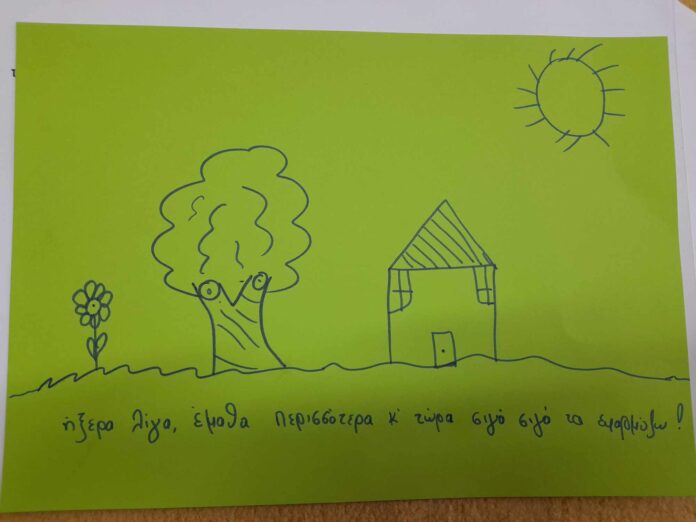 ήξερα λίγα, έμαθα περισσότερα κ' τώρα σιγά σιγά τα εφαρμόζω!